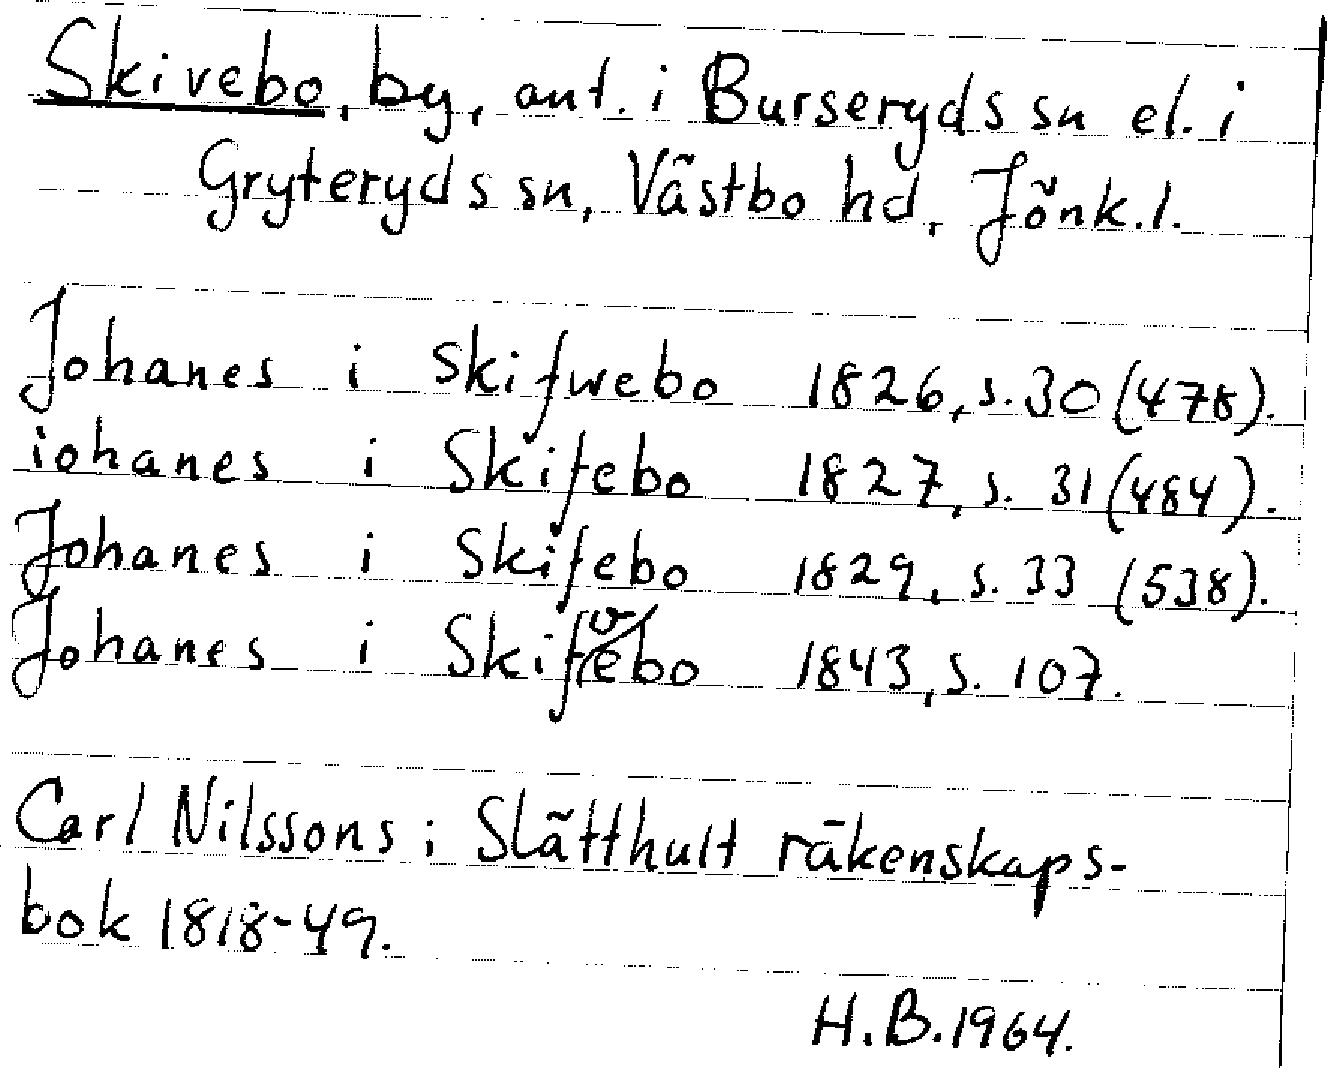 Skivebo, by, ant. i Burseryds sn el. i
Gryteryds sn, Västbo hd, Jönk.l.
Johanes i Skifwebo 1826, s. 30 (478).
iohanes i Skifebo 1827, s. 31 (484).
Johanes i Skifebo 1829, s. 33 (538).
Johanes i Skifvebo 1843, s. 107.
Carl Nilssons i Slätthult räkenskaps-
bok 1818-49.
H.B. 1964.